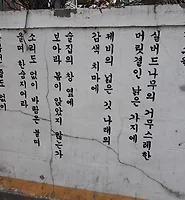 실버드나무의 거무스레한
머릿결인 낡은 가지에
제비의 넓은 깃 나래의
감색 치마에
술집의 창 옆에
보아라 봄이 앉았지 않는가
소리도 없이 바람은 불며
울며 한숨지어라